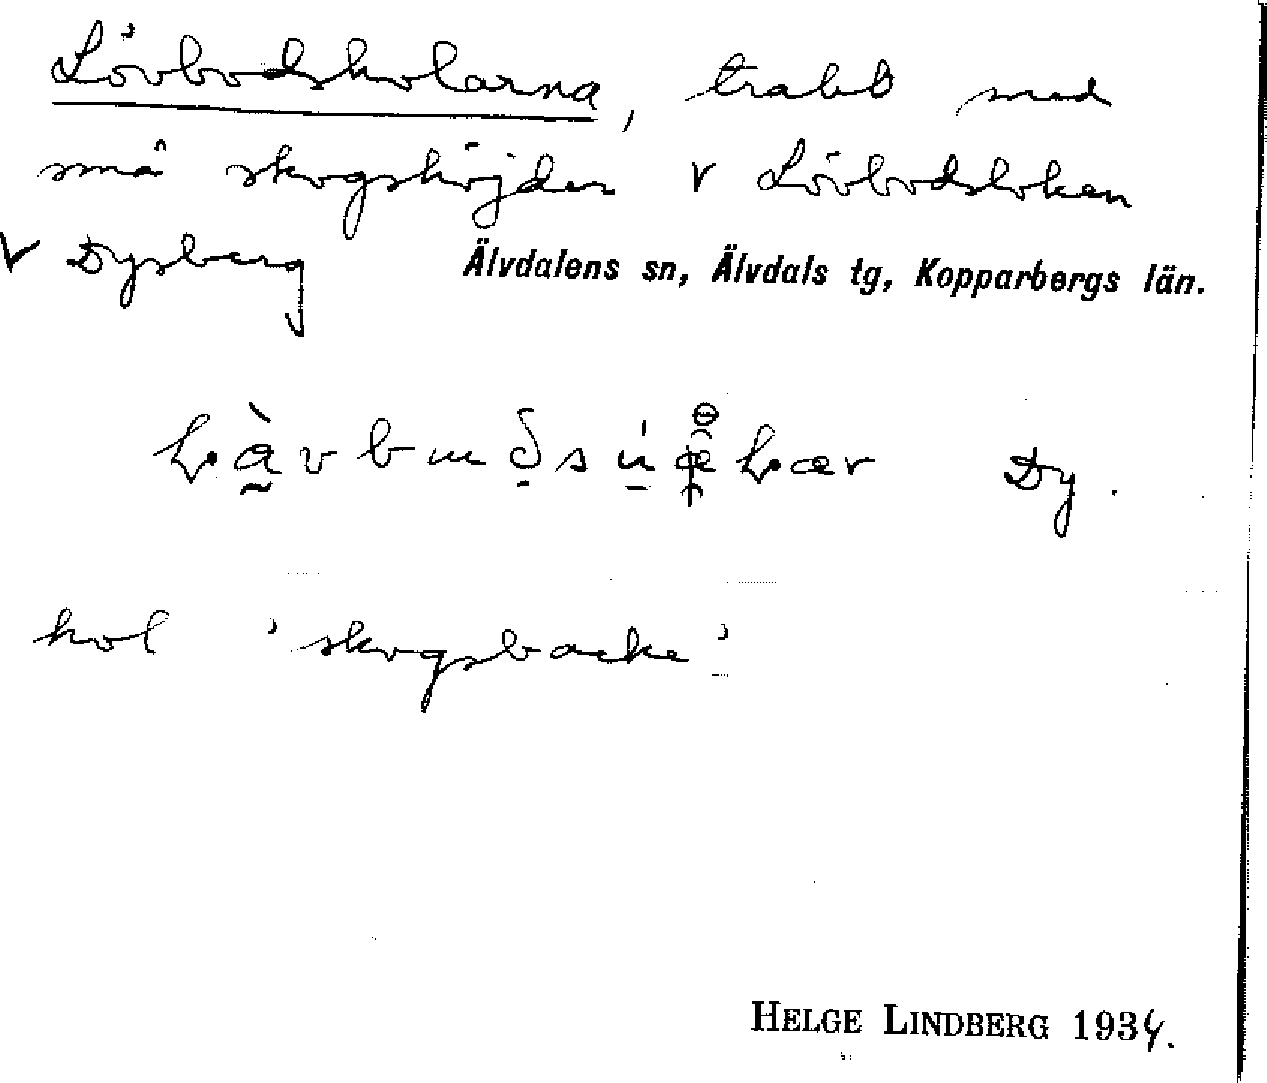 Lövbodskolarna, trakt med
små skogshöjder v Lövbodsloken
v Dysberg Älvdalens sn, Älvdals tg, Kopparbergs län.
Dy.
kol 'skogsbacke'
HELGE LINDBERG 1934.